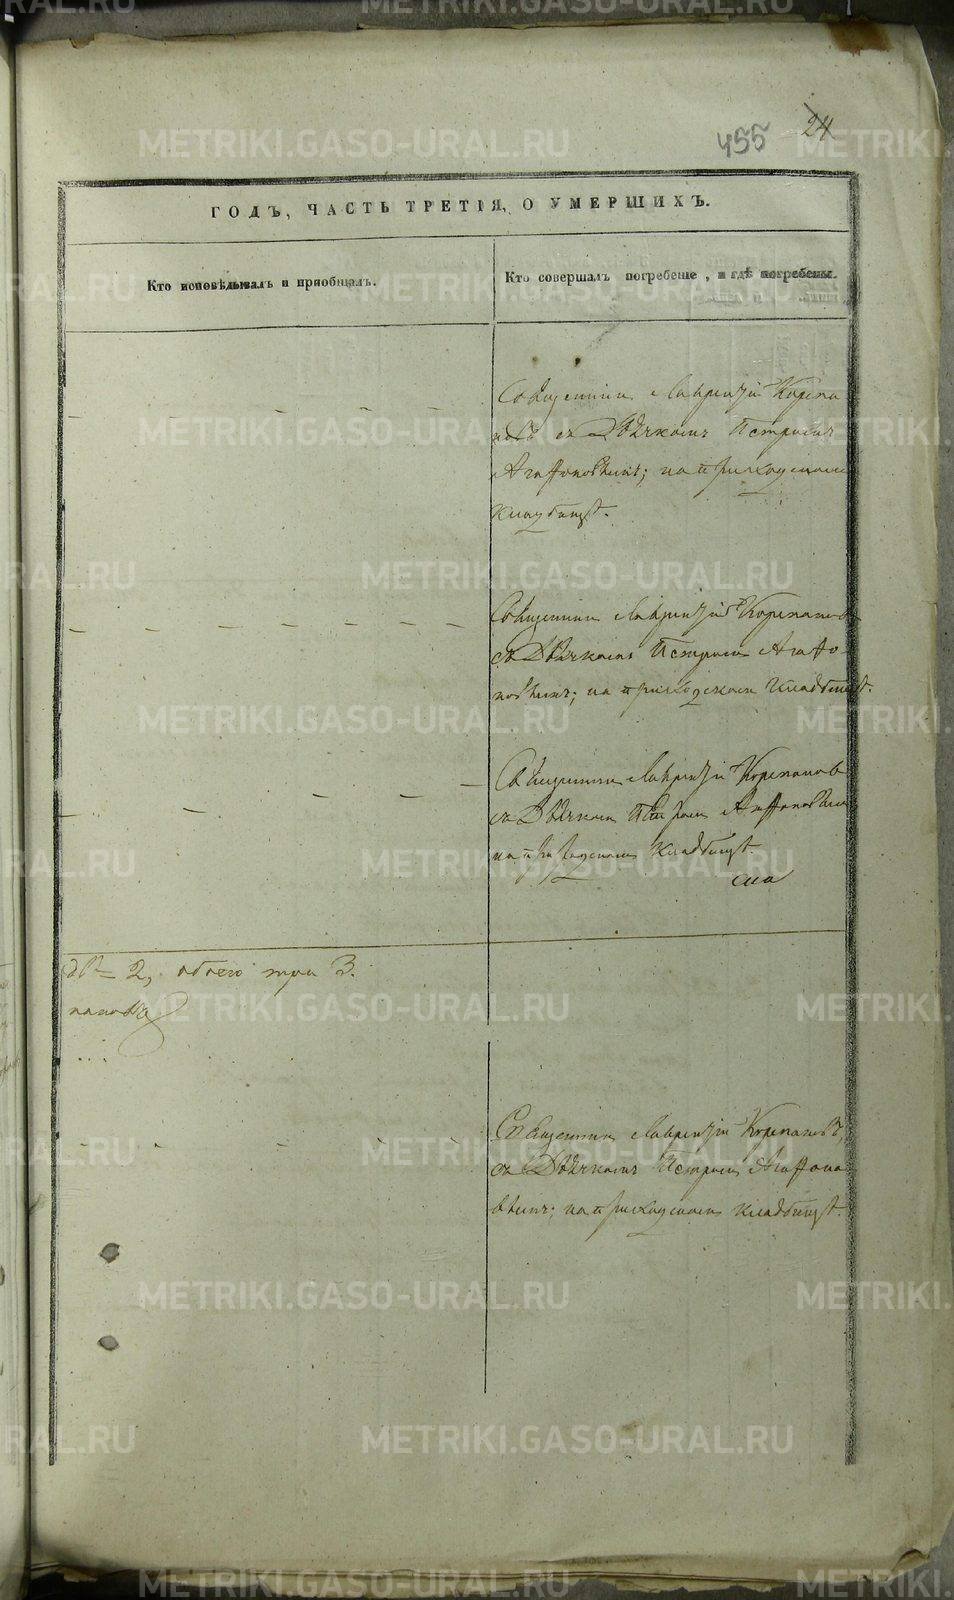 455 24
ГОДЪ, ЧАСТЬ ТРЕТІЯ, О УМЕРШИХЪ.
Кто исповѣдывалъ и пріобщалъ.
Кто совершалъ погребеніе, и гдѣ погребены.
Священникъ Лаврентій Корепа
новъ съ Дьячкомъ Петромъ
Агафоновымъ; на приходскомъ
кладбищѣ.
Священникъ Лаврентій Корепановъ
съ Дьячкомъ Петромъ Агафо-
новымъ; на приходскомъ кладбищѣ.
Священникъ Лаврентій Корепановъ
съ Дьячкомъ Петромъ Агафоновымъ
на приходскомъ кладбищѣ.
2, обоего три 3.
Священникъ Лаврентій Корепановъ,
съ Дьячкомъ Петромъ Агафоно
вымъ; на приходскомъ кладбищѣ.
METRIKI.GASO-URAL.RU